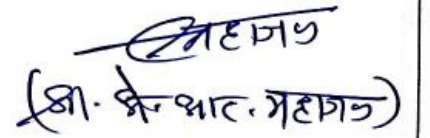 महाजन
(श्री. के. आर. महाजन)